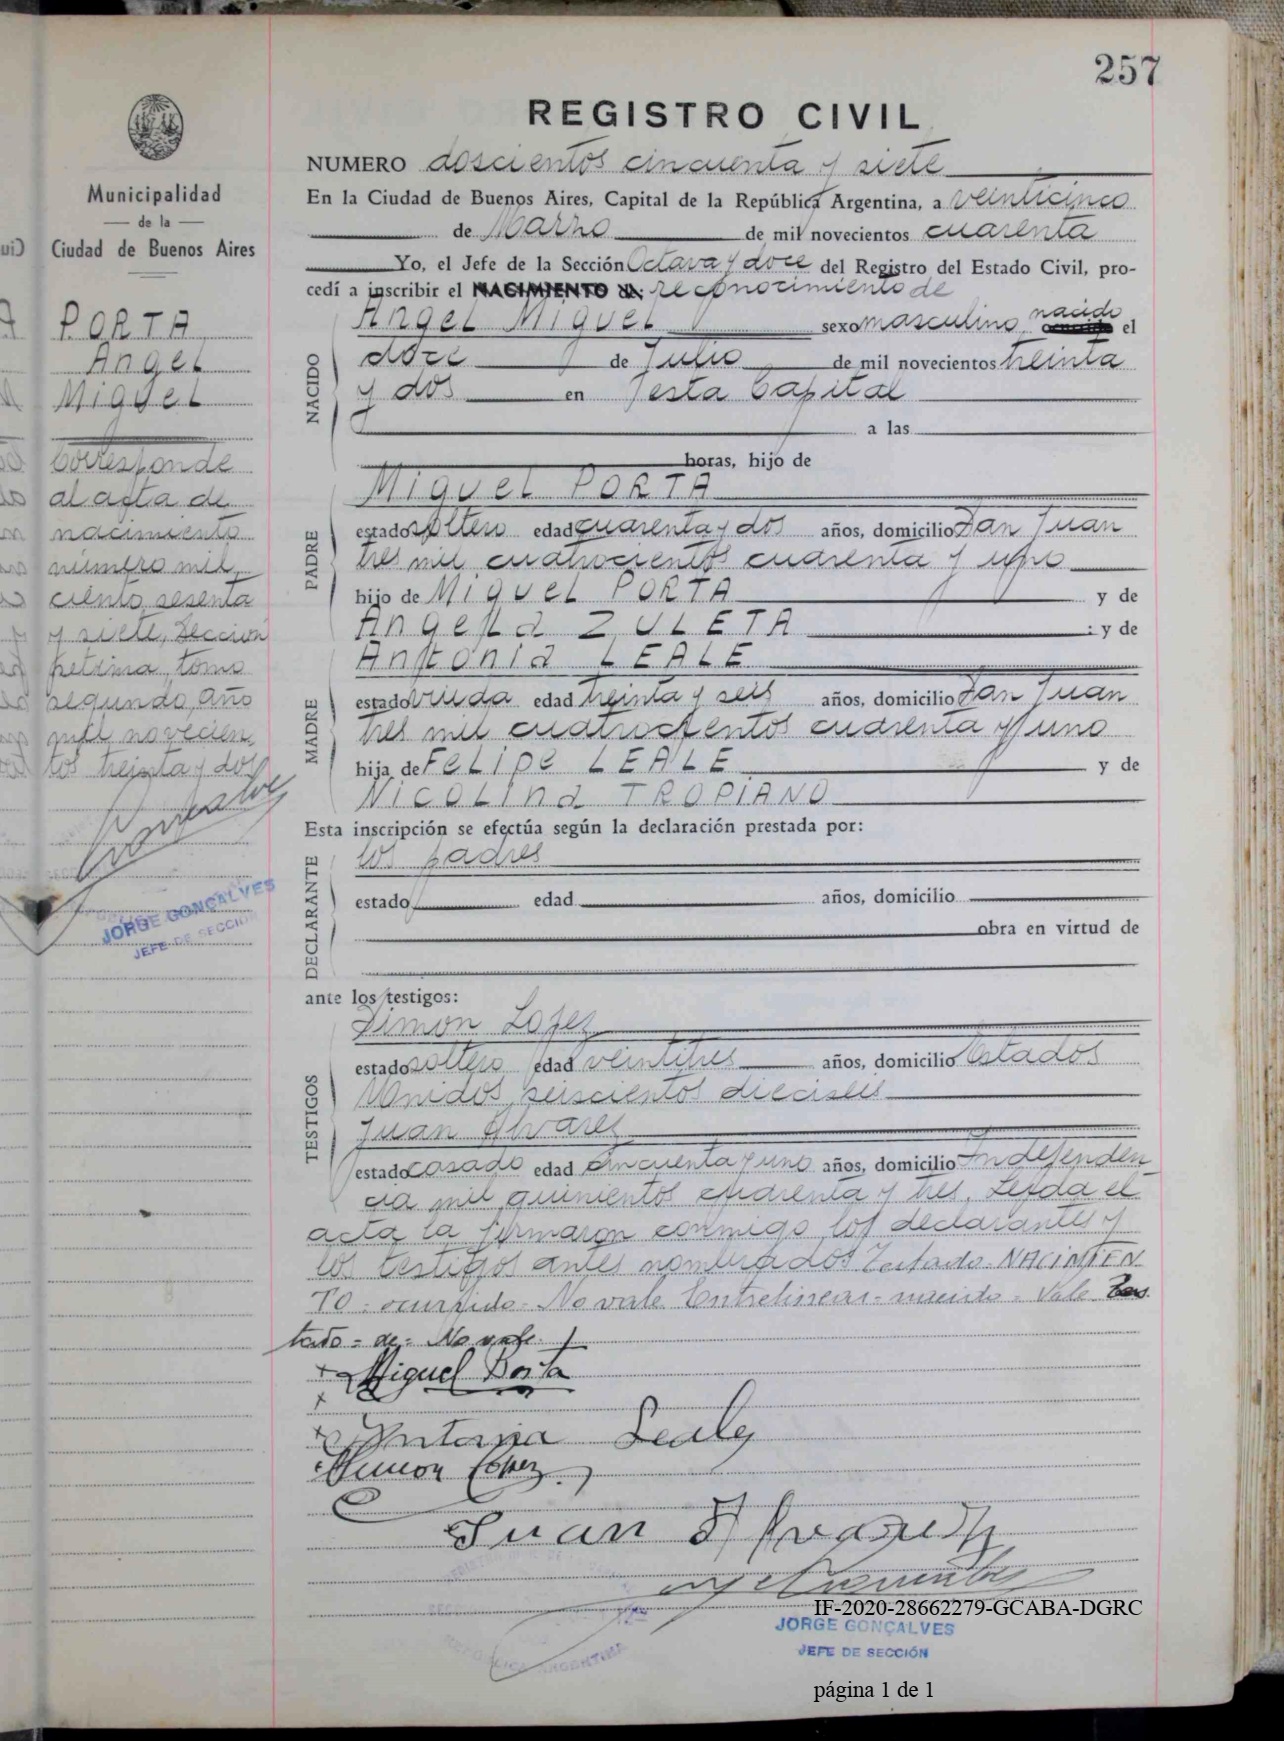 257
REGISTRO CIVIL
NUMERO doscientos cincuenta y siete
En la Ciudad de Buenos Aires, Capital de la República Argentina, a veinticinco
de Marzo de mil novecientos cuarenta
Yo, el Jefe de la Sección Octava y doce del Registro del Estado Civil, pro-
cedí a inscribir el NACIMIENTO de: reconocimiento de
Angel Miguel sexo masculino, nacido el
doce de Julio de mil novecientos treinta
y dos en esta Capital
a las
horas, hijo de
NACIDO
Miguel PORTA
estado soltero edad cuarenta y dos años, domicilio San Juan
tres mil cuatrocientos cuarenta y uno
hijo de Miguel PORTA y de
Angela ZULETA : y de
PADRE
Antonia LEALE
estado viuda edad treinta y seis años, domicilio San Juan
tres mil cuatrocientos cuarenta y uno
hija de Felipe LEALE y de
Nicolina TROPIANO
MADRE
Esta inscripción se efectúa según la declaración prestada por:
los padres
estado edad años, domicilio
obra en virtud de
DECLARANTE
ante los testigos:
Simon Lopez
estado soltero edad veintitres años, domicilio Estados
Unidos seiscientos dieciseis
Juan Alvarez
estado casado edad cincuenta y uno años, domicilio Independen
cia mil quinientos cuarenta y tres. Leída el
TESTIGOS
acta la firmaron conmigo los declarantes y
los testigos antes nombrados Testado NACIMIEN
TO = ocurrido = No vale Entrelineas = nacido = Vale Tes
tado = de = No vale
Miguel Porta
Antonia Leale
Simon Lopez
Juan Alvarez
IF-2020-28662279-GCABA-DGRC
JORGE GONÇALVES
JEFE DE SECCIÓN
página 1 de 1
Municipalidad
de la
Ciudad de Buenos Aires
PORTA
Angel
Miguel
Corresponde
al acta de
nacimiento
número mil
ciento sesenta
y siete, Sección
, tomo
segundo, año
mil novecien
tos treinta y dos
JORGE GONÇALVES
JEFE DE SECCIÓN